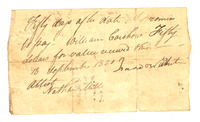 Fifty days after date I promise
to pay William Carshore Fifty
dollars for value received this
13 September 1820
Attest